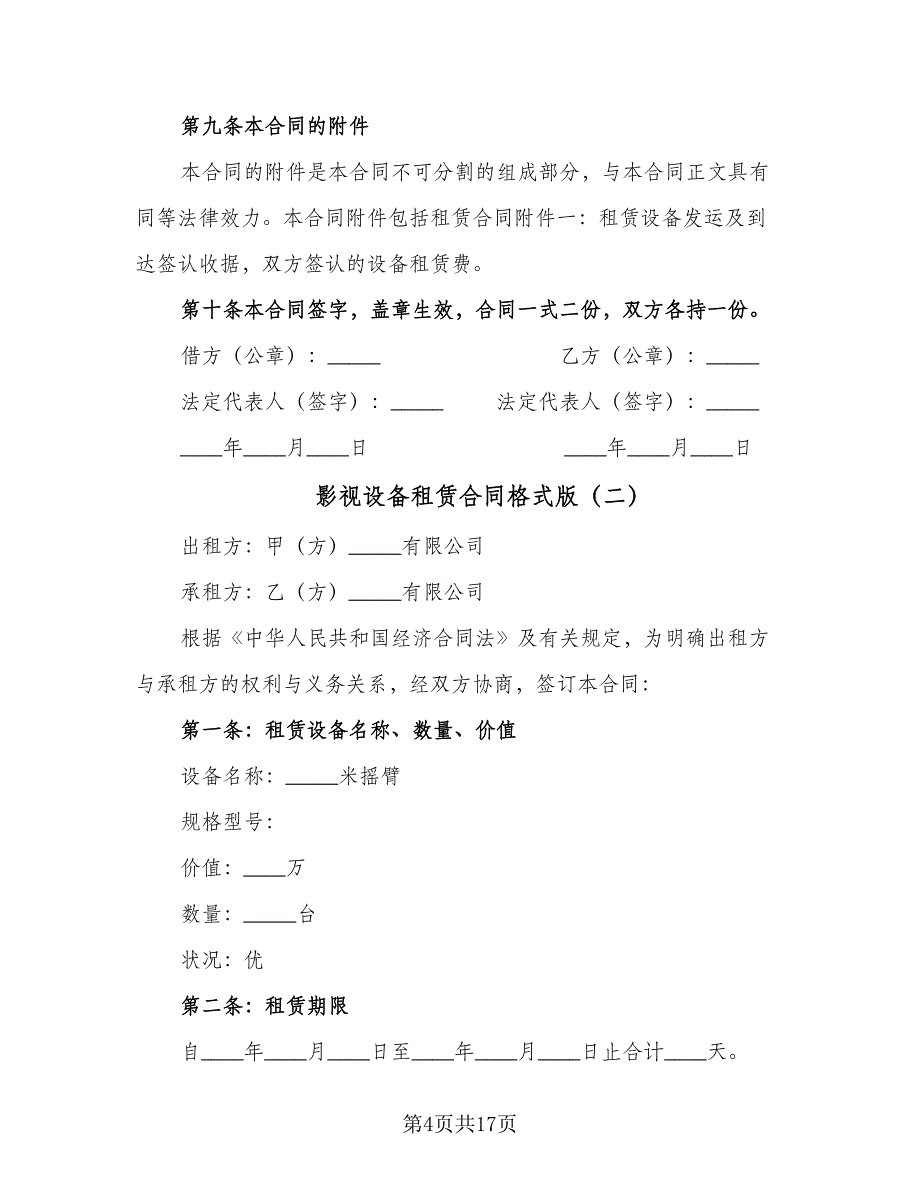 第九条本合同的附件
本合同的附件是本合同不可分割的组成部分，与本合同正文具有
同等法律效力。本合同附件包括租赁合同附件一：租赁设备发运及到
达签认收据，双方签认的设备租赁费。
第十条本合同签字，盖章生效，合同一式二份，双方各持一份。
借方（公章）：_____ 乙方（公章）：_____
法定代表人（签字）：_____ 法定代表人（签字）：_____
____年____月____日 ____年____月____日
影视设备租赁合同格式版（二）
出租方：甲（方）_____有限公司
承租方：乙（方）_____有限公司
根据《中华人民共和国经济合同法》及有关规定，为明确出租方
与承租方的权利与义务关系，经双方协商，签订本合同：
第一条：租赁设备名称、数量、价值
设备名称：_____米摇臂
规格型号：
价值：____万
数量：_____台
状况：优
第二条：租赁期限
自____年____月____日至____年____月____日止合计____天。
第4页共17页